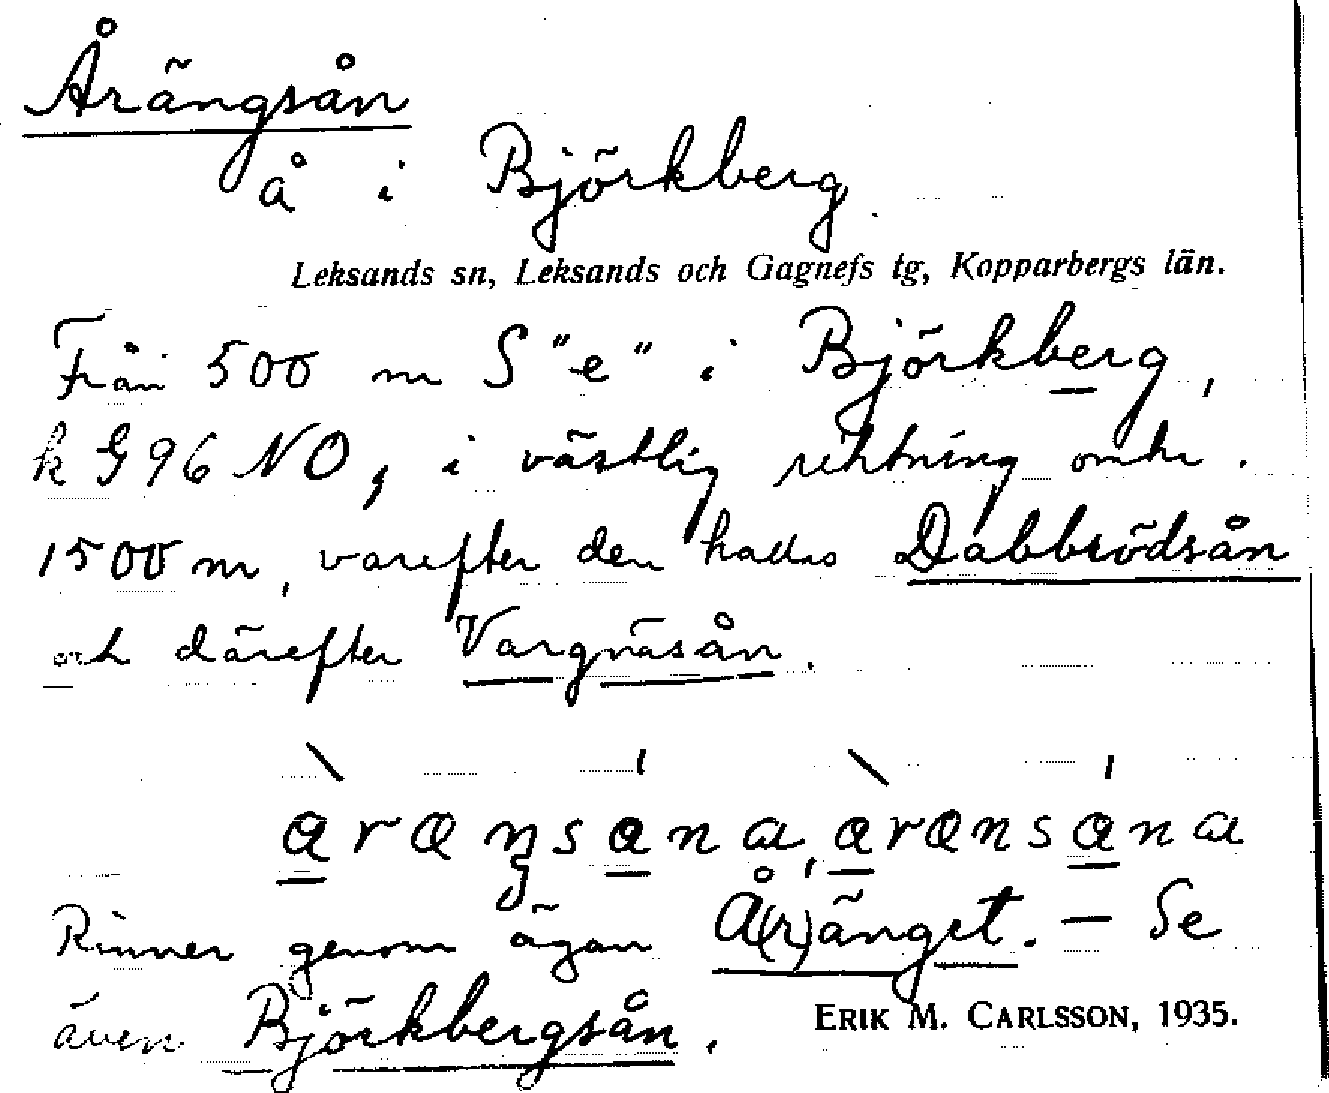 Årängsån
å i Björkberg.
Leksands sn, Leksands och Gagnefs tg, Kopparbergs län.
Från 500 m S "e" i Björkberg,
k G96 NO, i västlig riktning omkr.
1500 m, varefter den kallas Dabbrödsån
och därefter Vargnäsån.
àræŋsána, àrænsána
Rinner genom ägan Å(r)änget. — Se
även Björkbergsån.
ERIK M. CARLSSON, 1935.